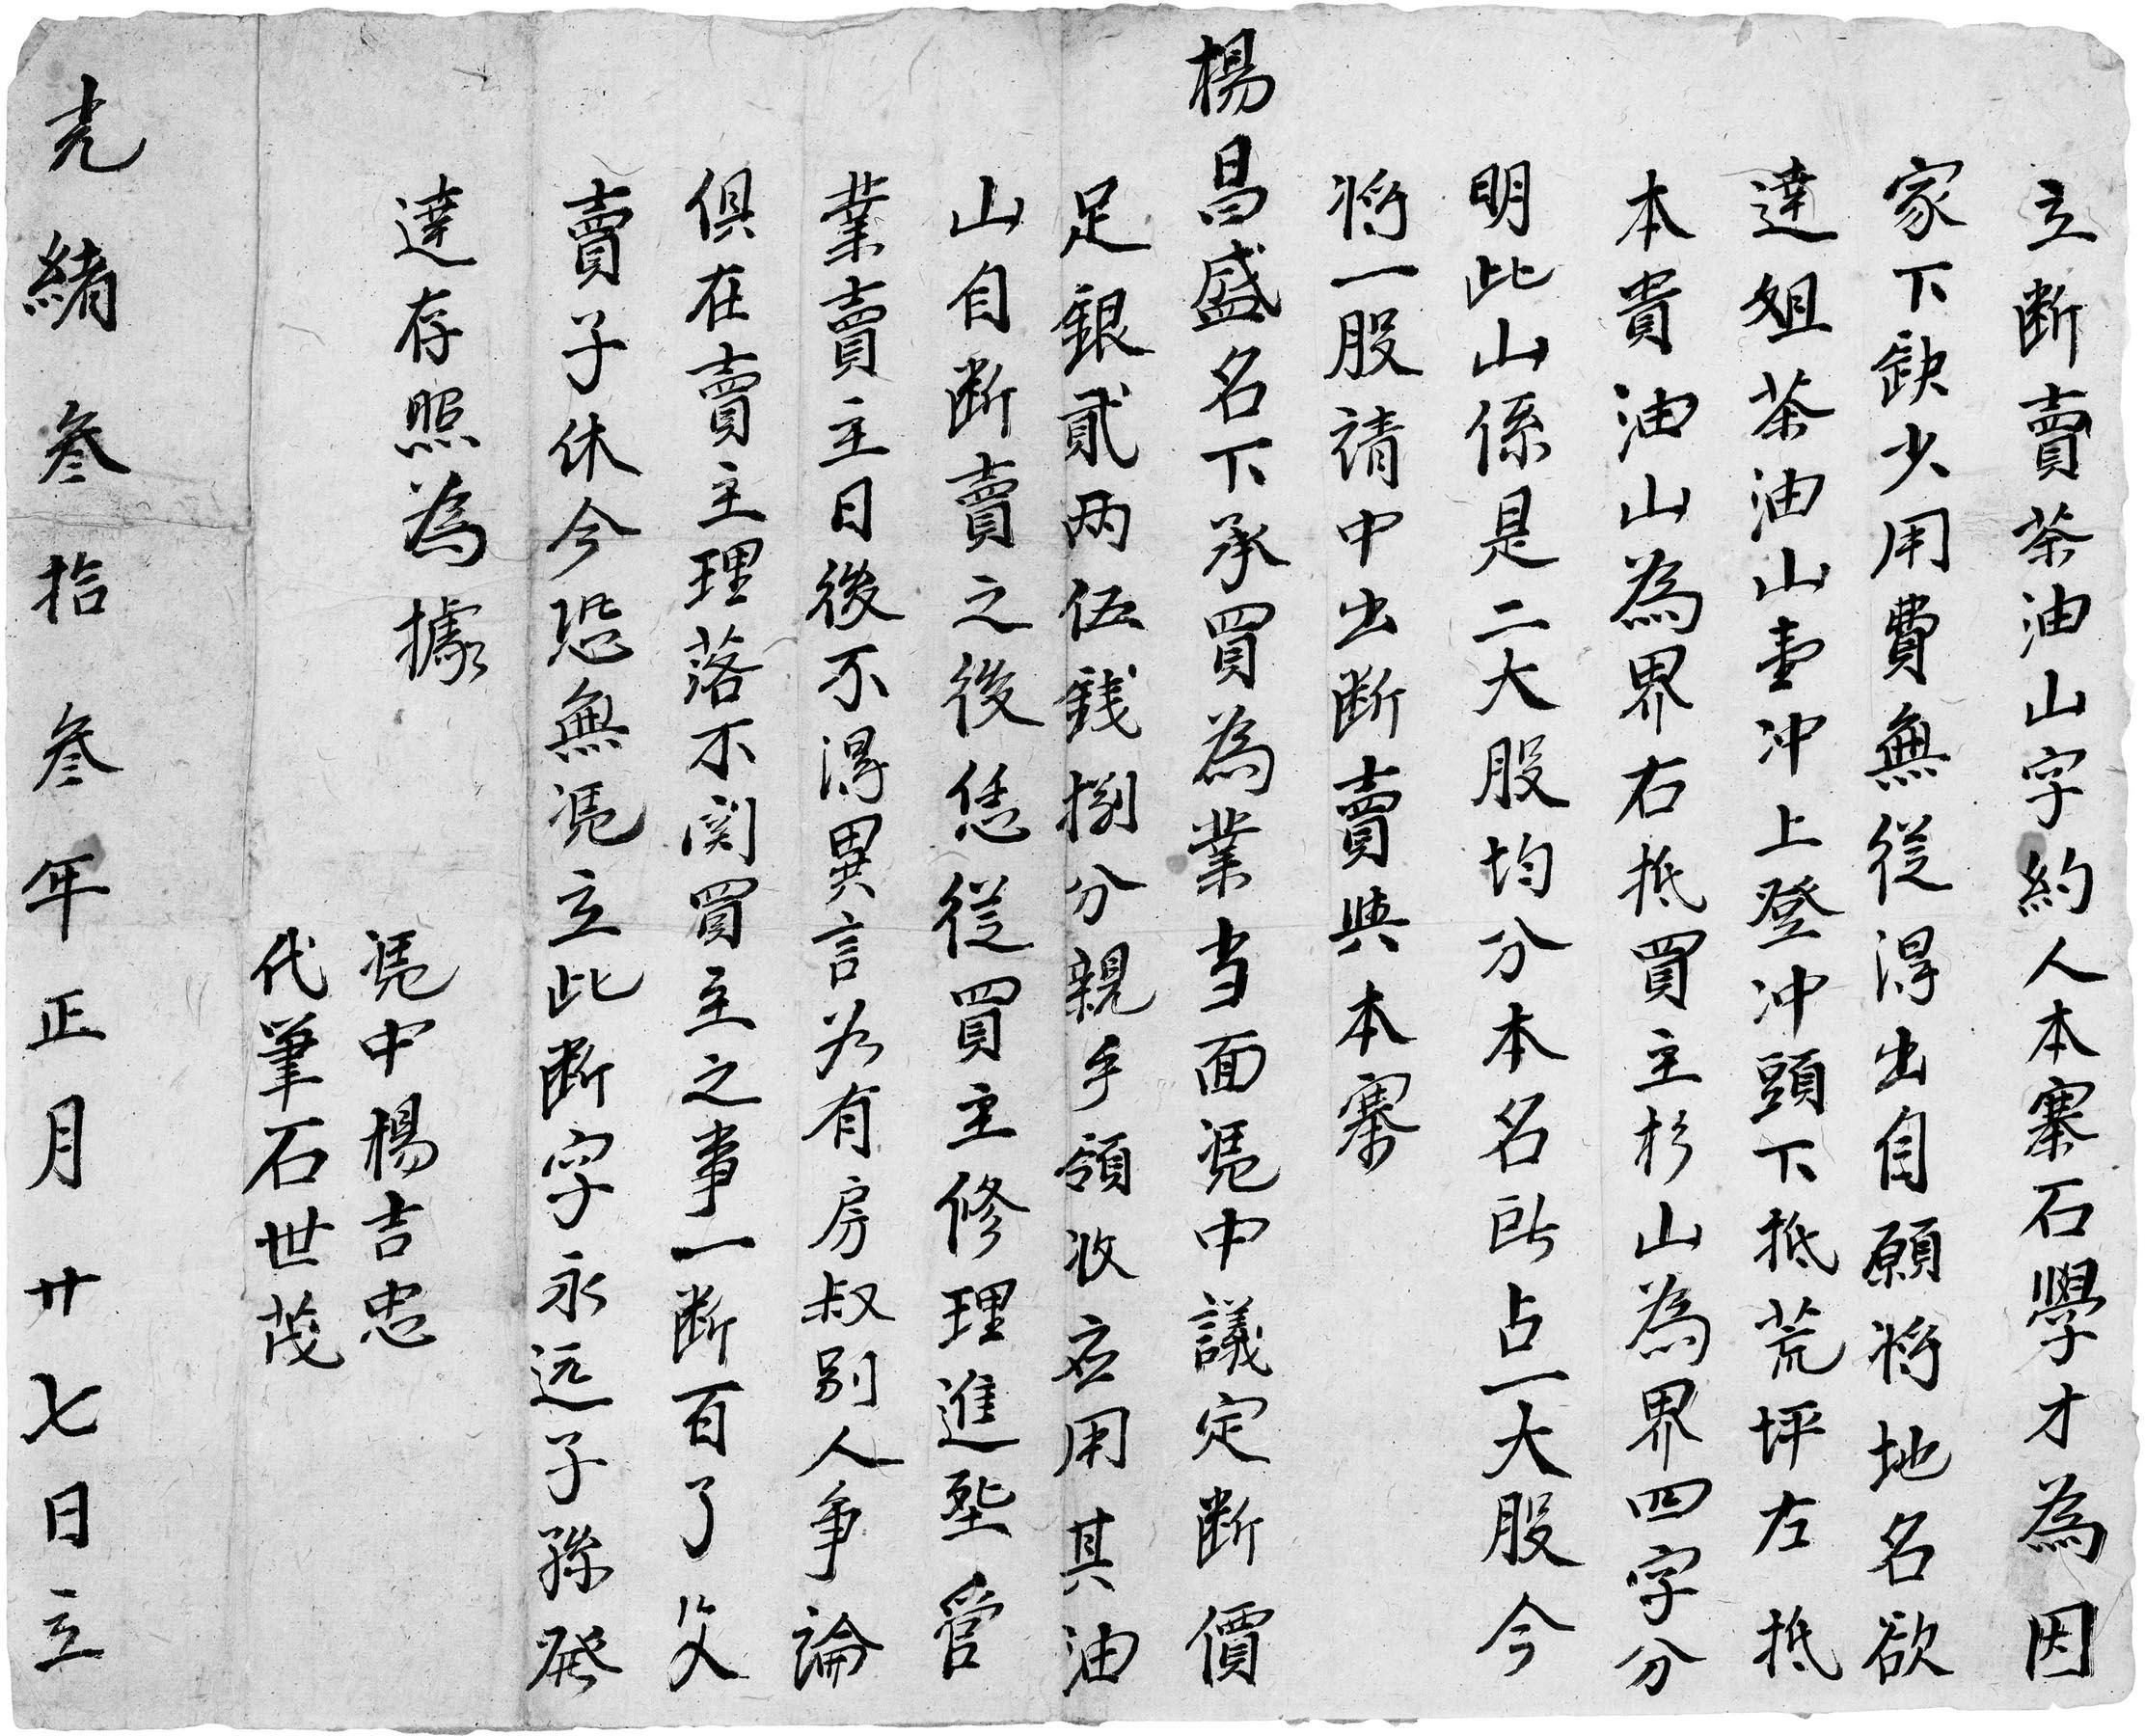 立断賣茶油山字約人本寨石學才為因
家下缺少用費無從淂出自願將地名欲
達姐茶油山壹冲上登冲頭下抵荒坪左抵
本貴油山為界右抵買主杉山為界四字分
明此山係是二大股均分本名所占一大股今
將一股請中出断賣與本寨
楊昌盛名下承買為業当面凴中議定断價
足銀貳两伍錢捌分親手領收应用其油
山自断賣之後恁從買主修理進塹管
業賣主日後不淂異言若有房叔别人争論
俱在賣主理落不関買主之事一断百了父
賣子休今恐無凴立此断字永远子孫發
達存照為據
凴中楊吉忠
代筆石世茂
光緒叄拾叄年正月廿七日立